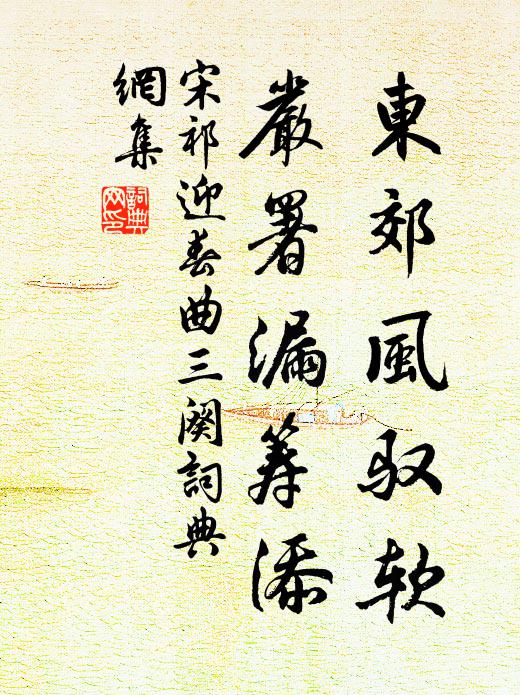 東郊風馭軟
嚴署漏籌添
宋祁迎春曲三闋詞典
網集
詞典
网印